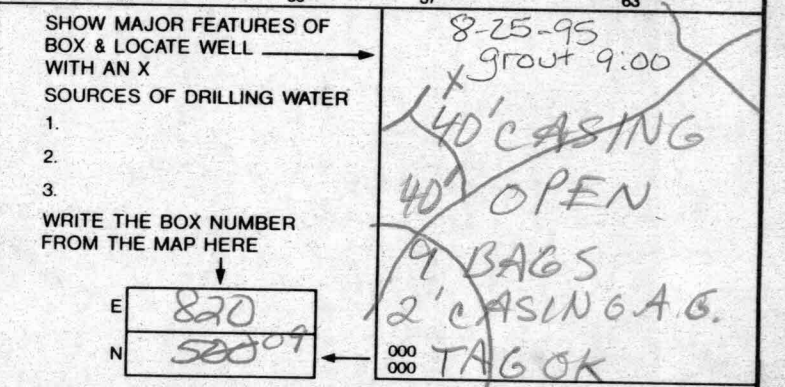 SHOW MAJOR FEATURES OF
BOX & LOCATE WELL
WITH AN X
SOURCES OF DRILLING WATER
1.
2.
3.
WRITE THE BOX NUMBER
FROM THE MAP HERE
E 820
N 50009
000
000
8-25-95
grout 9:00
X
40' CASING
40' OPEN
9 BAGS
2' CASING A.G.
TAG OK